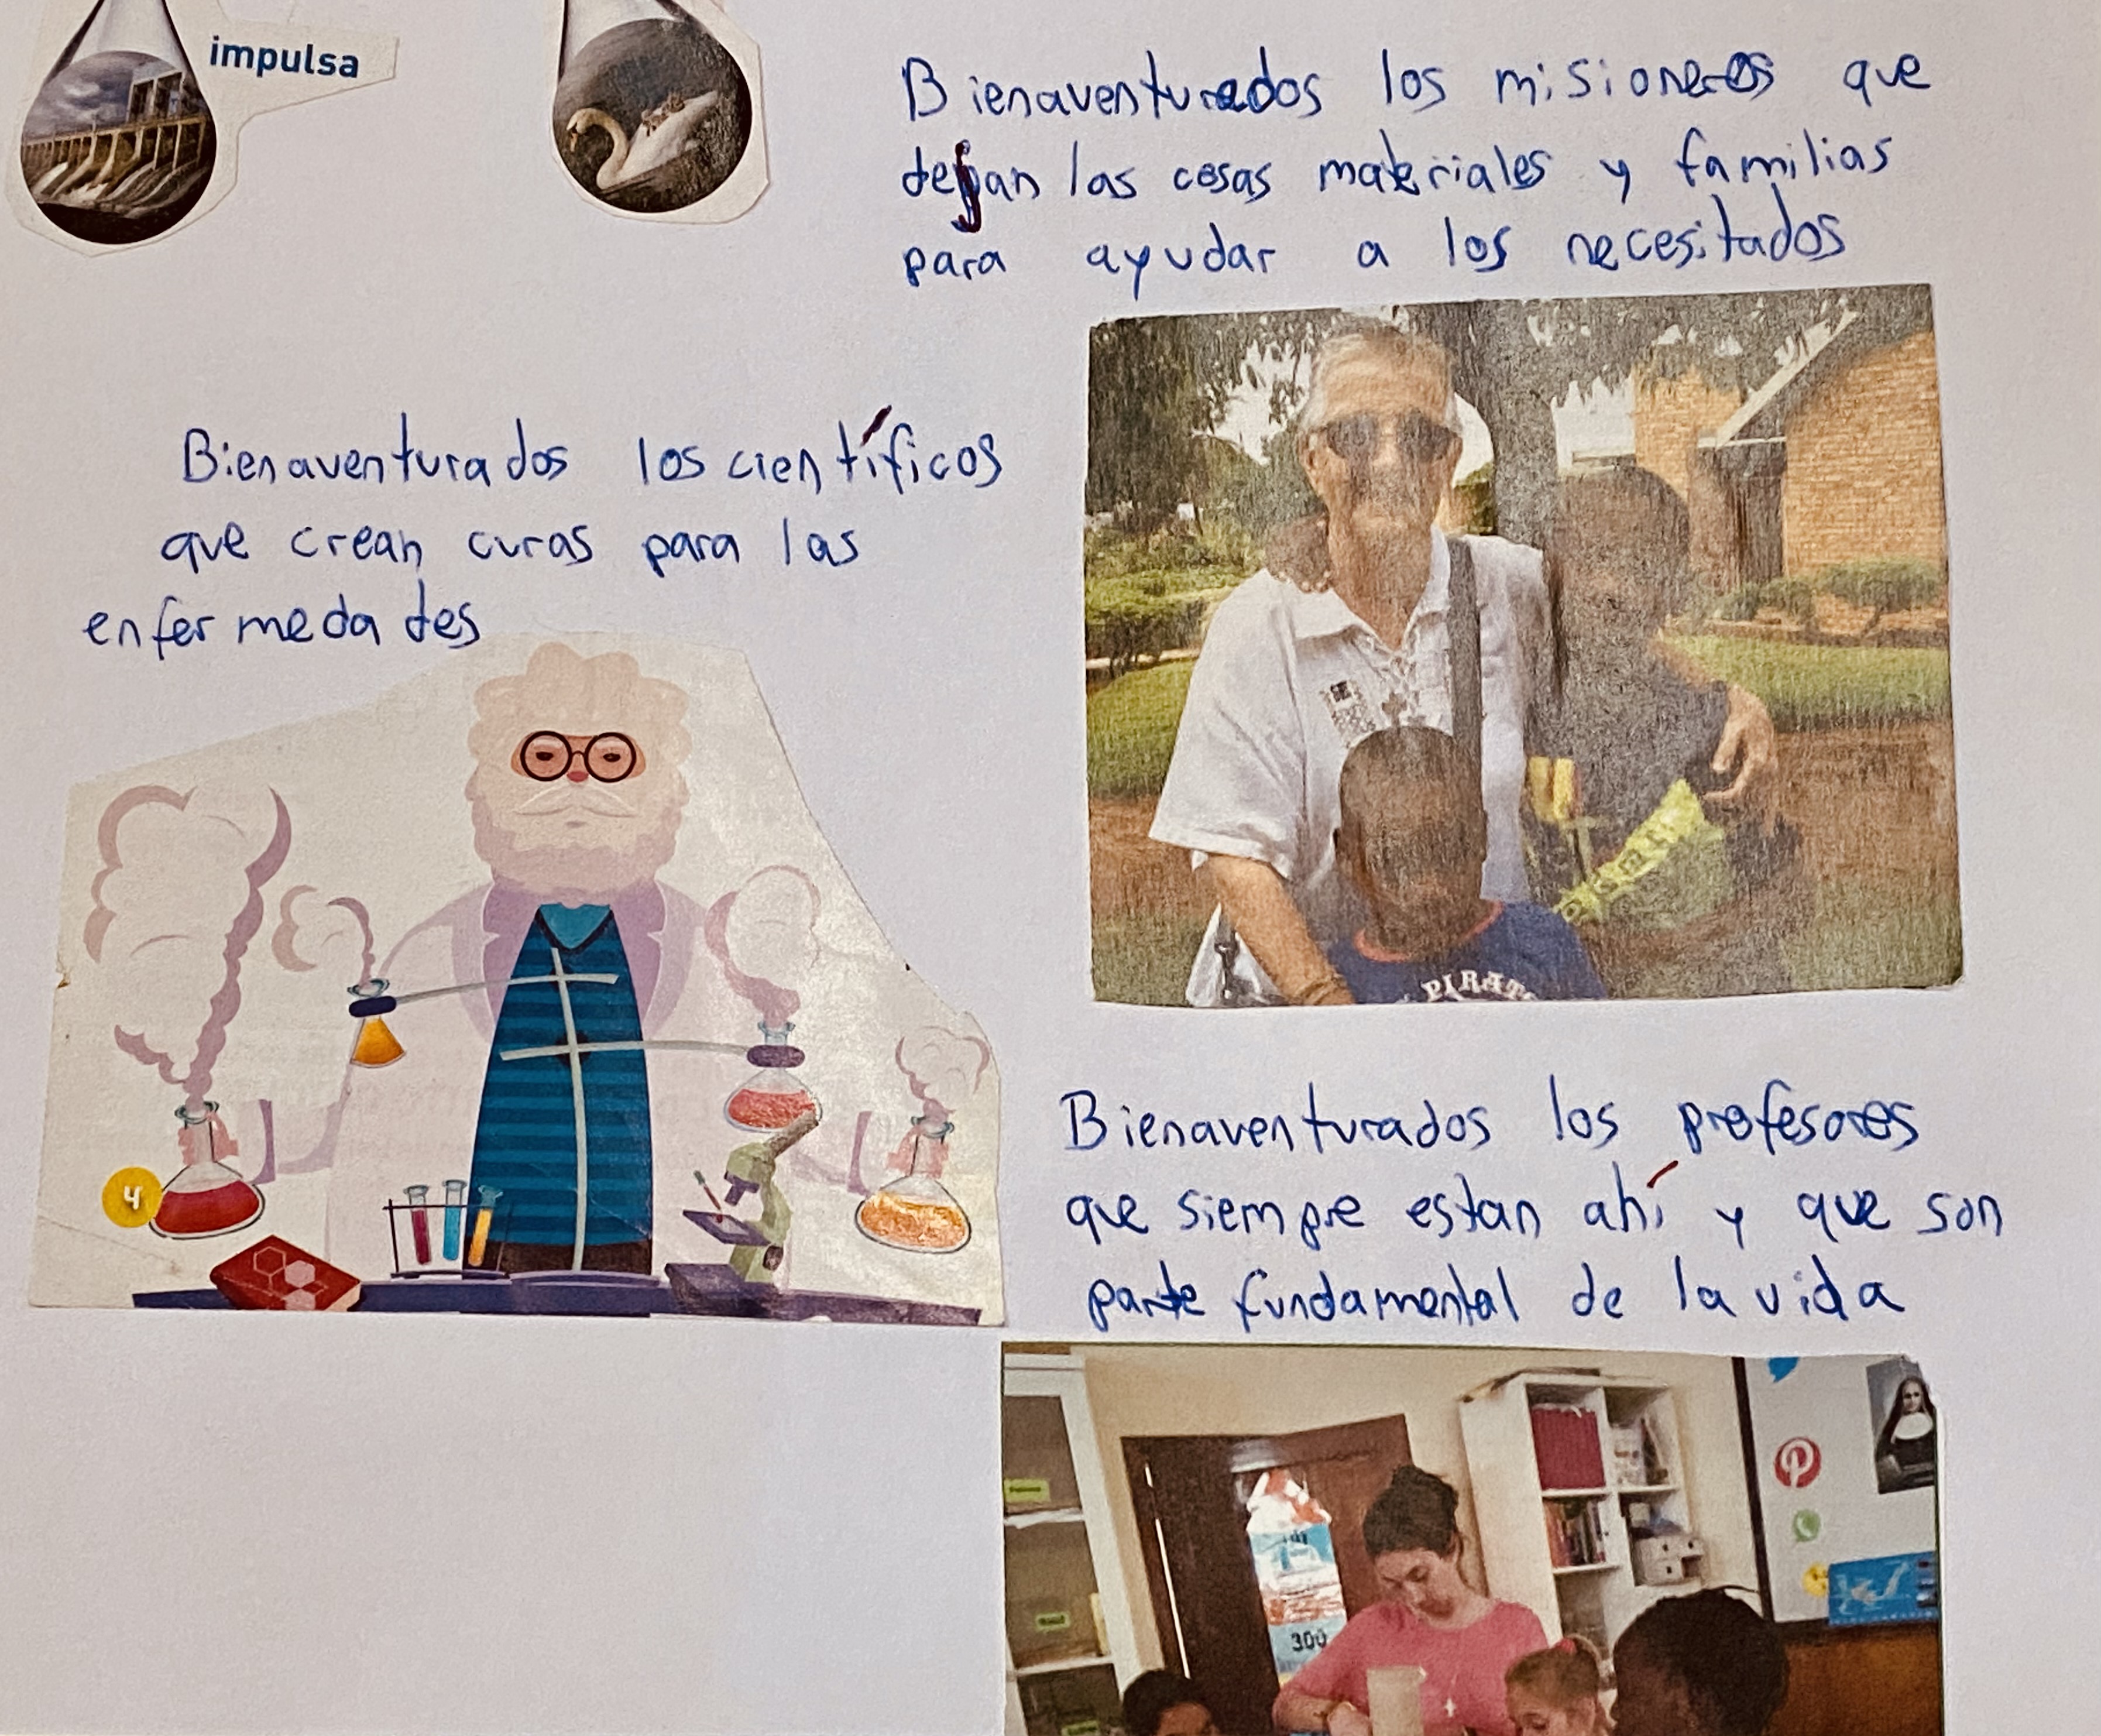 impulsa
Bienaventurados los misioneros que
dejan las cosas materiales y familias
para ayudar a los necesitados
Bienaventurados los científicos
que crean curas para las
enfermedades
PIRAT
4
Bienaventurados los profesores
que siempre estan ahí y que son
parte fundamental de la vida
300